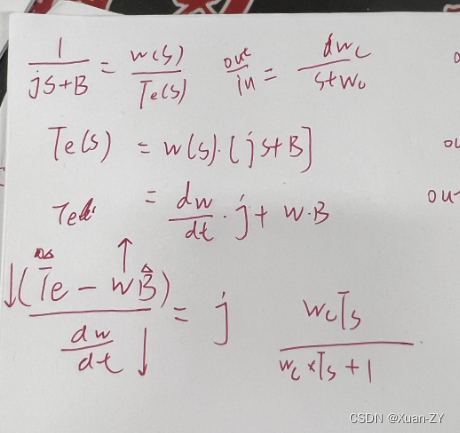 1/(js+B) = w(s)/Te(s)
out/in = dwc/(s+w0)
Te(s) = w(s)·[js+B]
= dw/dt · j + w·B
↓(Te - wB)/(dw/dt)↓ = j
↑
wcTs/(wc×Ts+1)
CSDN @Xuan-ZY